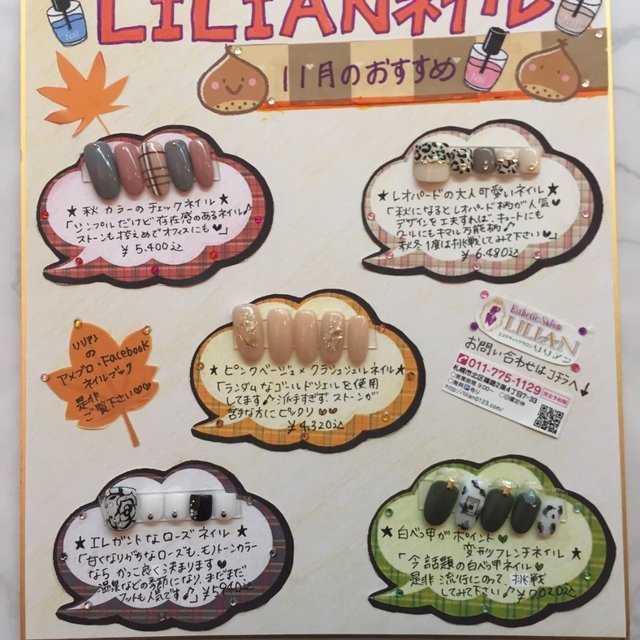 LILIANネイル
Nail
11月のおすすめ
★秋カラーのチェックネイル★
「シンプルだけど存在感のあるネイル♪
ストーンも控えめでオフィスにも♥」
¥5,400込
★レオパードの大人可愛いネイル★
「秋になるとレオパード柄が人気♥
デザインを工夫すれば、キュートにも
クールにもキマル万能柄♪
秋冬1度は挑戦してみて下さい♥」
¥6,480込
リリアン
の
アメブロ・Facebook
ネイルブック
是非
ご覧下さい♡♡
★ピンクベージュ×クラッシュジェルネイル★
「ランダムなゴールドジェルを使用
してます♪派手すぎず、ストーンが
苦手な方にピッタリ♥♥」
¥4,320込
Esthetic Salon
LILIAN
エステティックサロン リリアン
お問い合わせはコチラへ↓
011-775-1129
http://lilian0123.com/
★エレガントなローズネイル★
「甘くなりがちなローズも、モノトーンカラー
なら かっこ良く決まります♥
温泉などの季節になり、まだまだ
フットも人気です♪」¥5,940込
★白べっ甲がポイント♥
変形フレンチネイル★
「今話題の白べっ甲ネイル♥
是非流行にのって、挑戦
してみて下さい♪」¥7,020込